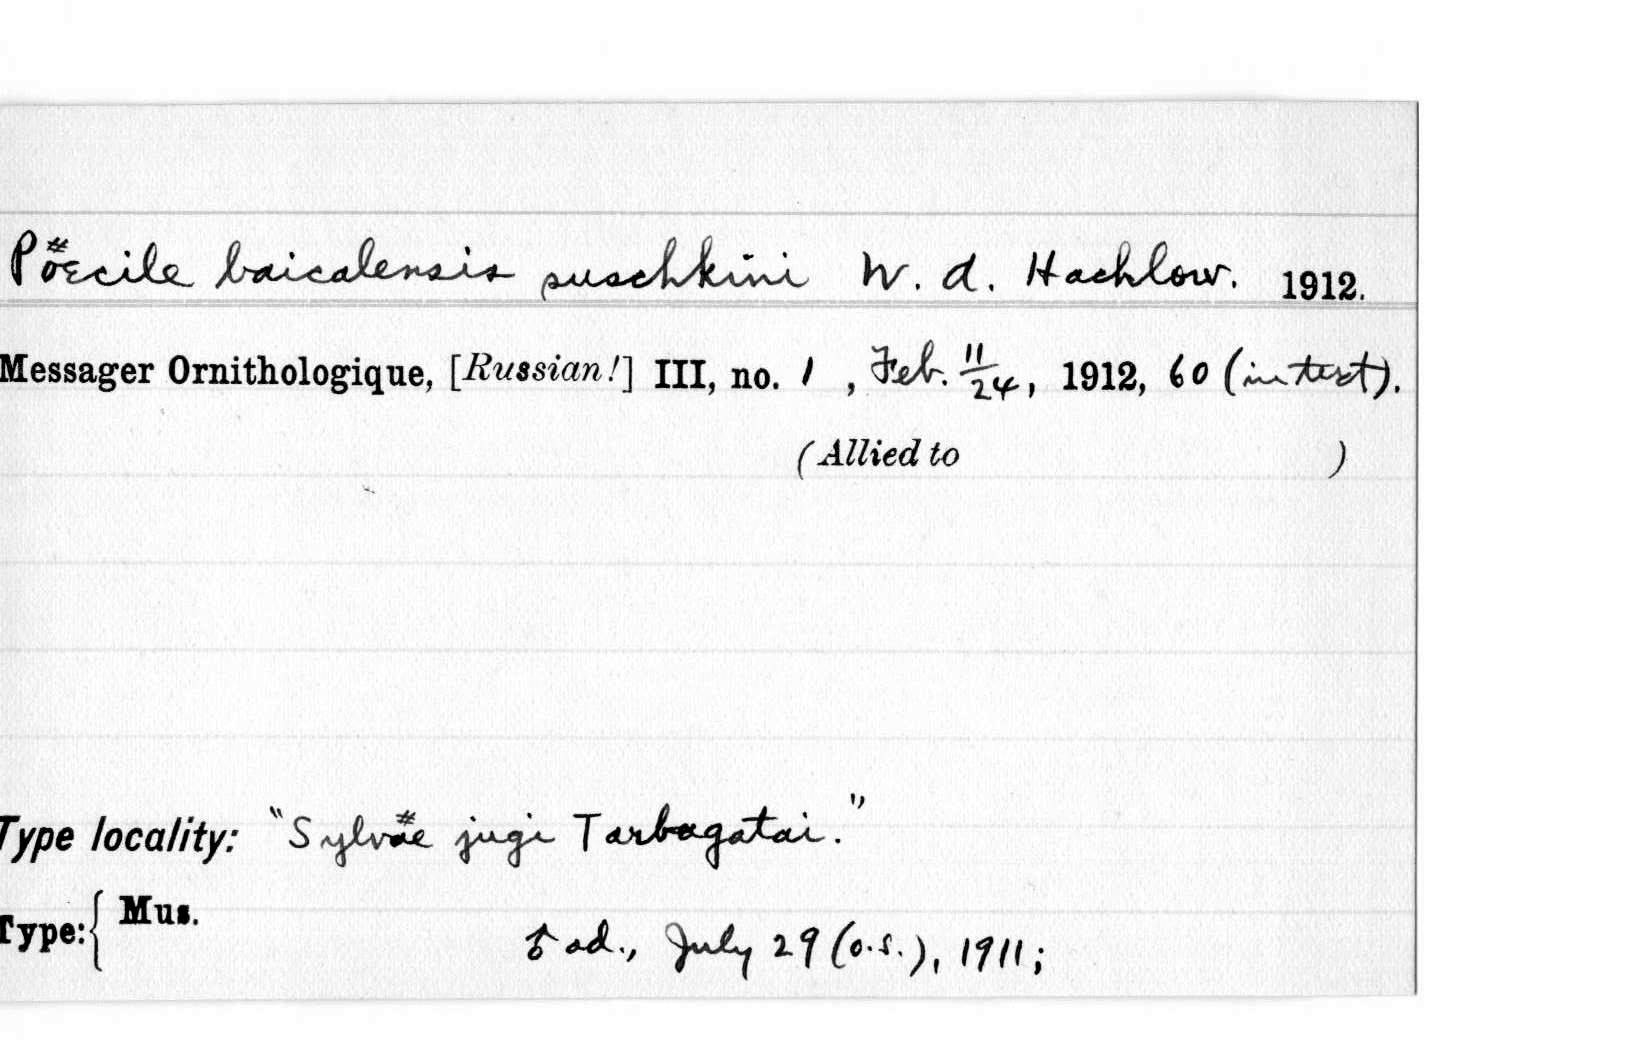 Pœcile baicalensis suschkini W. A. Hachlow. 1912.
Messager Ornithologique, [Russian!] III, no. 1, Feb. 11/24, 1912, 60 (in text).
(Allied to )
Type locality: "Sylvæ jugi Tarbagatai."
Type: { Mus.
♂ ad., July 29 (o.s.), 1911;